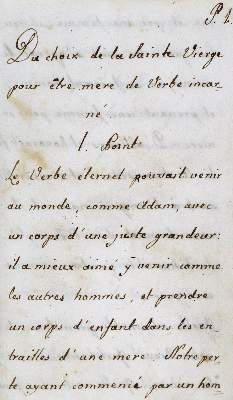 P. 1.
Du choix de la Sainte Vierge
pour être mere de Verbe incar
né
1. Point
Le Verbe éternel pouvait venir
au monde, comme Adam, avec
un corps d'une juste grandeur:
il a mieux aimé y venir comme
les autres hommes, et prendre
un corps d'enfant dans les en
trailles d'une mere Notre per
te ayant commencé par un hom